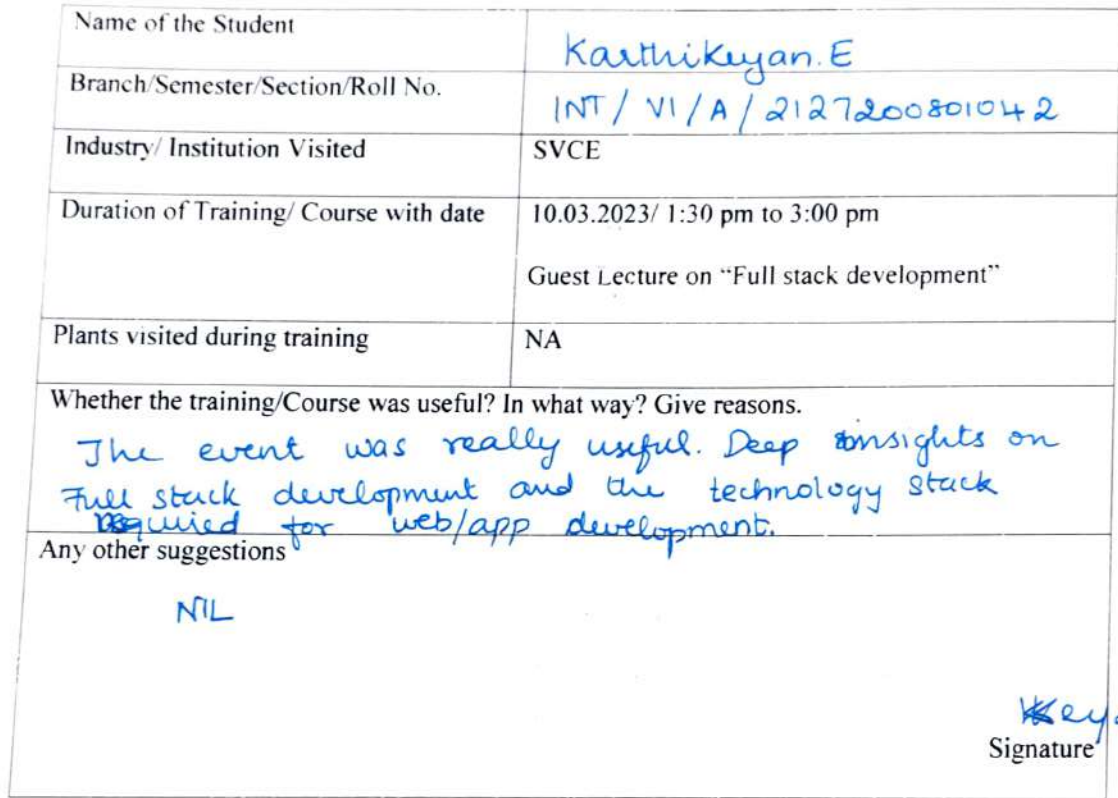 Name of the Student
Karthikeyan.E
Branch/Semester/Section/Roll No.
INT / VI / A / 2127200801042
Industry/ Institution Visited
SVCE
Duration of Training/ Course with date
10.03.2023/ 1:30 pm to 3:00 pm
Guest Lecture on “Full stack development”
Plants visited during training
NA
Whether the training/Course was useful? In what way? Give reasons.
The event was really useful. Deep insights on
Full stack development and the technology stack
required for web/app development.
Any other suggestions
NIL
Signature